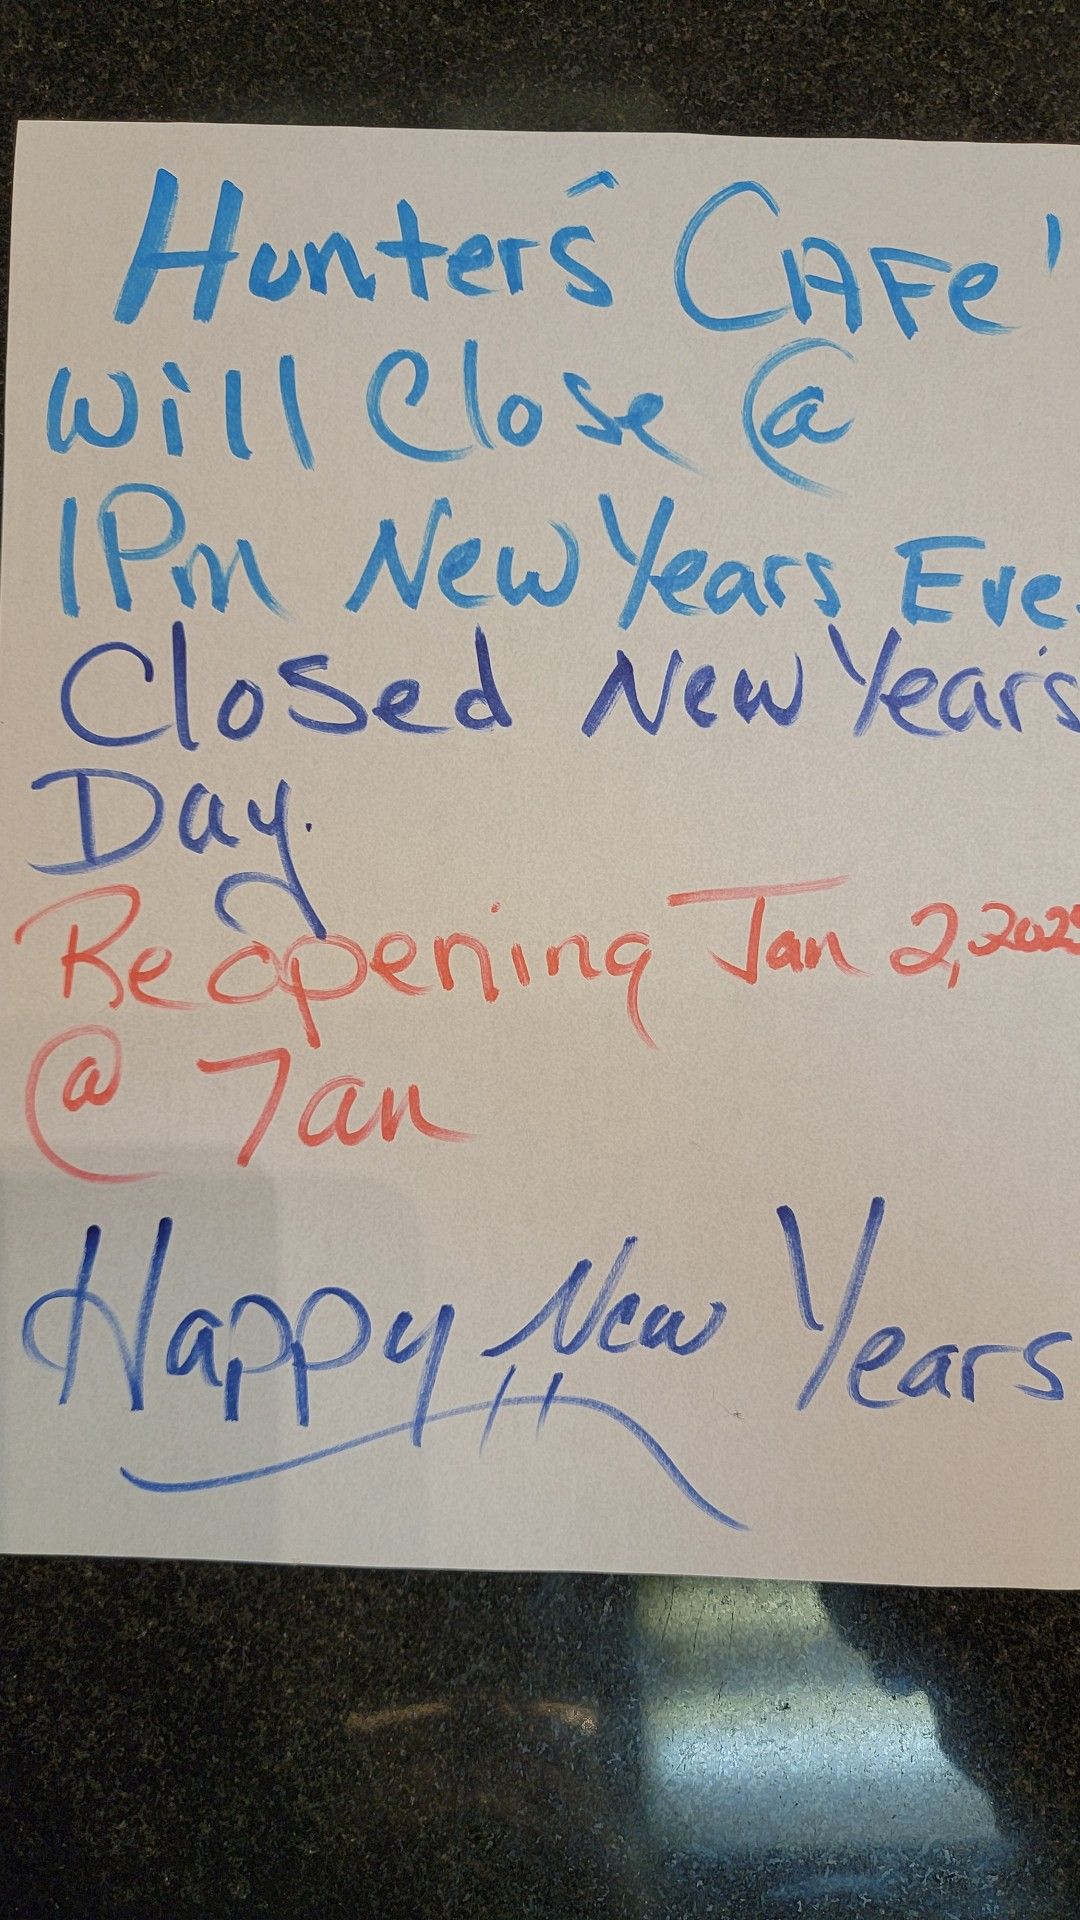 Hunter's CAFe'
will Close @
1Pm New Years Eve.
Closed New Year's
Day.
Reopening Jan 2, 2025
@ 7am
Happy New Years